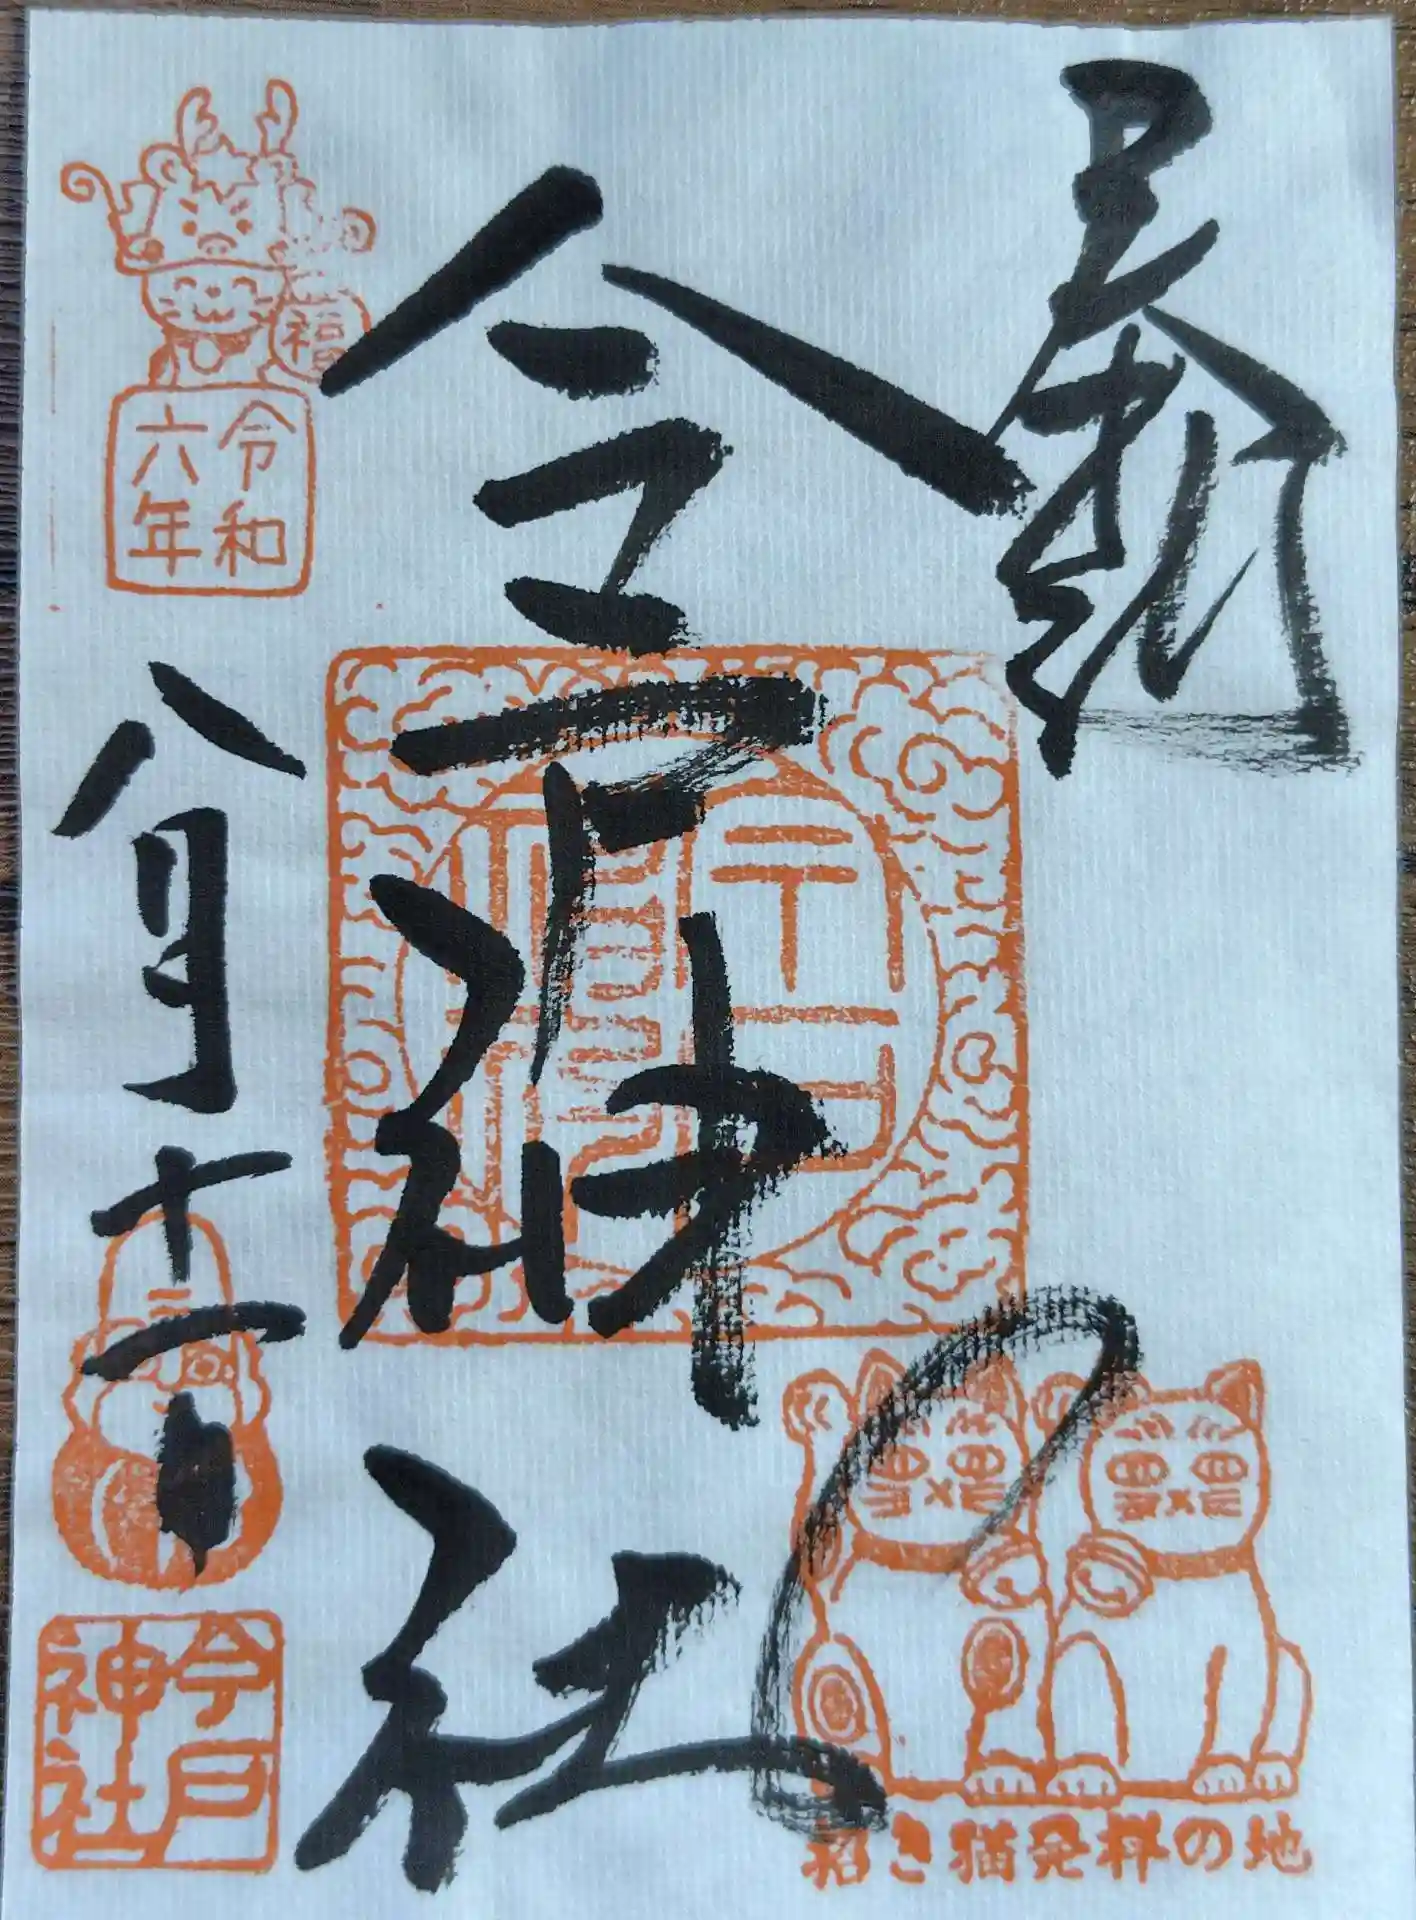 今戸神社
福
令和
六年
八月十一日
今戸
神社
招き猫発祥の地